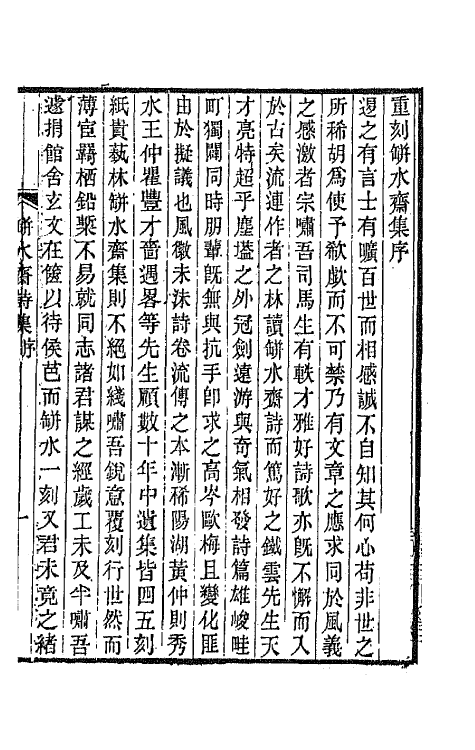 重刻缾水齋集序
遏之有言士有曠百世而相感誠不自知其何心苟非世之
所稀胡爲使予欷歔而不可禁乃有文章之應求同於風義
之感激者宗嘯吾司馬生有軼才雅好詩歌亦旣不懈而入
於古矣流連作者之林讀缾水齋詩而篤好之鐵雲先生天
才亮特超乎塵壒之外冠劍遠游與奇氣相發詩篇雄峻畦
町獨闢同時朋輩旣無與抗手卽求之高岑歐梅且變化匪
由於擬議也風徽未沬詩卷流傳之本漸稀陽湖黃仲則秀
水王仲瞿豐才嗇遇畧等先生顧數十年中遺集皆四五刻
紙貴藝林缾水齋集則不絕如綫嘯吾銳意覆刻行世然而
薄宦羇栖鉛槧不易就同志諸君謀之經歲工未及半嘯吾
遽捐館舍玄文在篋以待侯芭而缾水一刻又君未竟之緖
缾水齋詩集序
一